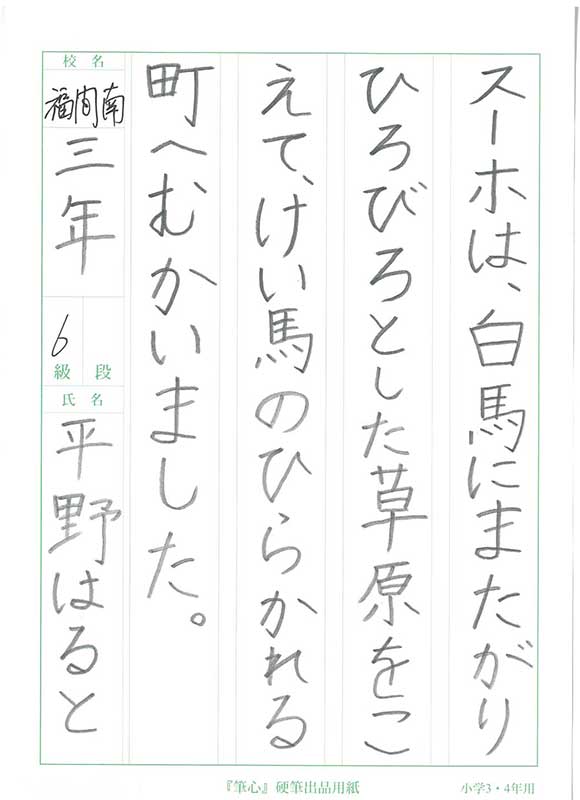 スーホは、白馬にまたがり
ひろびろとした草原をこ
えて、けい馬のひらかれる
町へむかいました。
校名
福間南
三年
6
級 段
氏名
平野はると
『筆心』硬筆出品用紙
小学3・4年用